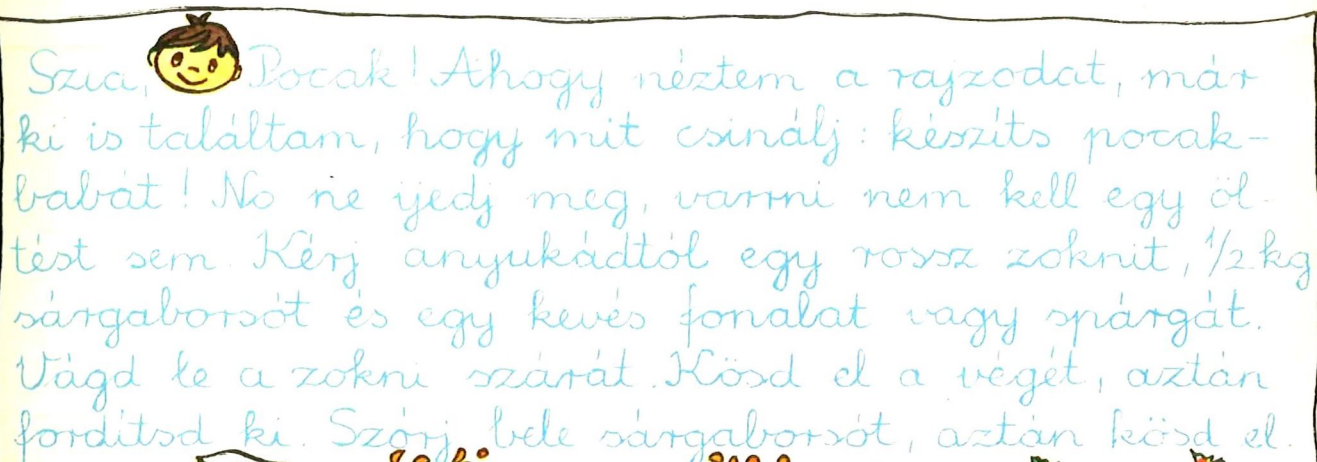 Szia, Pocak! Ahogy néztem a rajzodat, már
ki is találtam, hogy mit csinálj: készíts pocak-
babát! No ne ijedj meg, varrni nem kell egy öl-
tést sem. Kérj anyukádtól egy rossz zoknit, 1/2 kg
sárgaborsót és egy kevés fonalat vagy spárgát.
Vágd le a zokni szárát. Kösd el a végét, aztán
fordítsd ki. Szórj bele sárgaborsót, aztán kösd el.